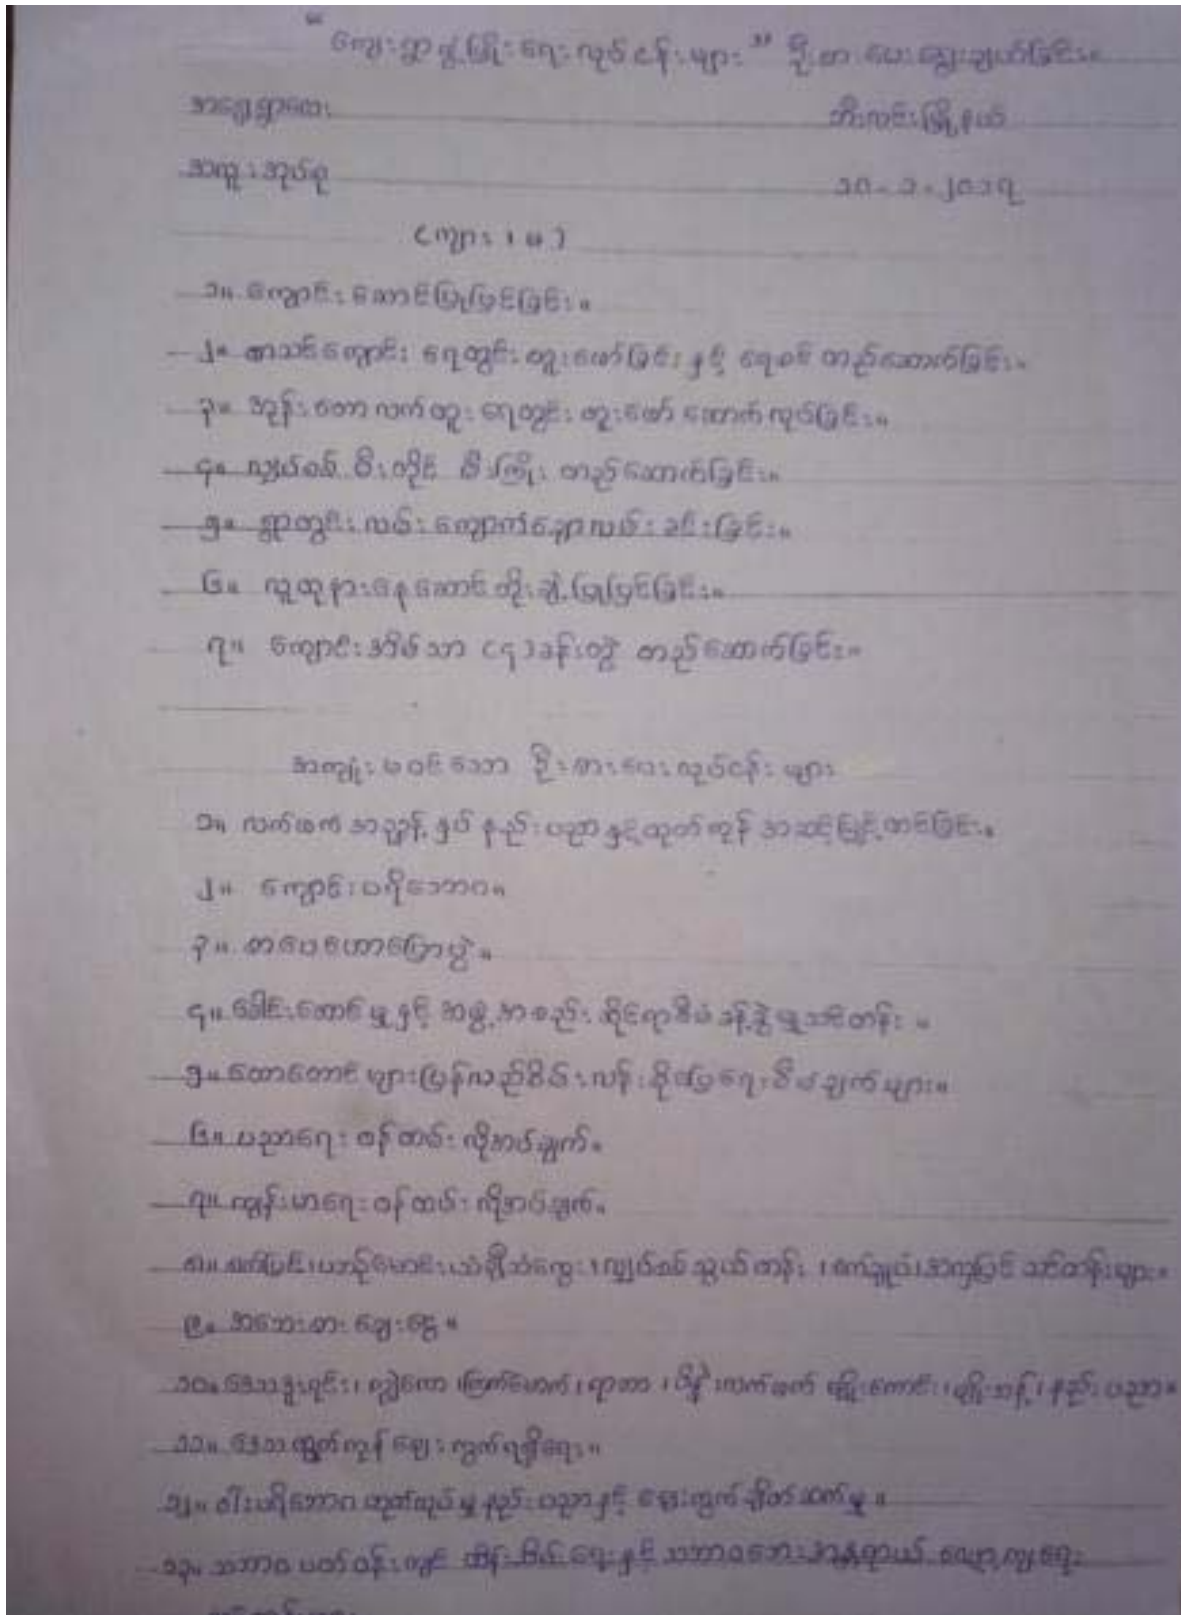 "ကျေးရွာဖွံ့ဖြိုးရေးလုပ်ငန်းများ" ဦးစားပေးရွေးချယ်ခြင်း။
ဘီးလင်းမြို့နယ်
အထူးအုပ်စု ၁၀-၁-၂၀၁၇
(ကျား၊မ)
၁။ ကျောင်းဆောင်ပြုပြင်ခြင်း။
၂။ စာသင်ကျောင်း ရေတွင်းတူးဖော်ခြင်းနှင့် ရေစင်တည်ဆောက်ခြင်း။
၃။ အုန်းတောလက်တူးရေတွင်း တူးဖော် ဆောက်လုပ်ခြင်း။
၄။ လျှပ်စစ် မီးတိုင် မီးကြိုး တည်ဆောက်ခြင်း။
၅။ ရွာတွင်းလမ်း ကျောက်ချောလမ်းခင်းခြင်း။
၆။ လူထုနားနေဆောင် တိုးချဲ့ပြုပြင်ခြင်း။
၇။ ကျောင်းအိမ်သာ (၄)ခန်းတွဲ တည်ဆောက်ခြင်း။
အကျုံးမဝင်သော ဦးစားပေးလုပ်ငန်းများ
၁။ လက်ဖက် အညွန့် နည်းပညာနှင့်ထုတ်ကုန် အဆင့်မြှင့်တင်ခြင်း။
၂။ ကျောင်းပရိဘောဂ။
၃။ စာပေဟောပြောပွဲ။
၄။ ခေါင်းဆောင်မှုနှင့် အဖွဲ့အစည်းဆိုင်ရာစီမံခန့်ခွဲမှုသင်တန်း။
၅။ တောတောင်များပြန်လည်စိမ်းလန်းစိုပြေရေးစီမံချက်များ။
၆။ ပညာရေးဝန်ထမ်းလိုအပ်ချက်။
၇။ ကျန်းမာရေးဝန်ထမ်းလိုအပ်ချက်။
၈။ စက်ပြင်၊ ယာဉ်မောင်း၊ လျှပ်စစ်သွယ်တန်း၊ စက်ချုပ်၊ အလှပြင် သင်တန်းများ။
၉။ အသေးစားချေးငွေ။
၁၀။ ဒေသ ဒူးရင်း၊ ကြက်မောက်၊ ရာဘာ၊ လက်ဖက် မျိုးကောင်း၊ မျိုးသန့်၊ နည်းပညာ။
၁၁။ ဒေသထွက်ကုန် ဈေးကွက်ရရှိရေး။
၁၂။ ဝါးပရိဘောဂ ထုတ်လုပ်မှုနည်းပညာနှင့် ဈေးကွက်ချိတ်ဆက်မှု။
၁၃။ သဘာဝပတ်ဝန်းကျင် ထိန်းသိမ်းရေးနှင့် သဘာဝဘေးအန္တရာယ် လျော့ကျရေး